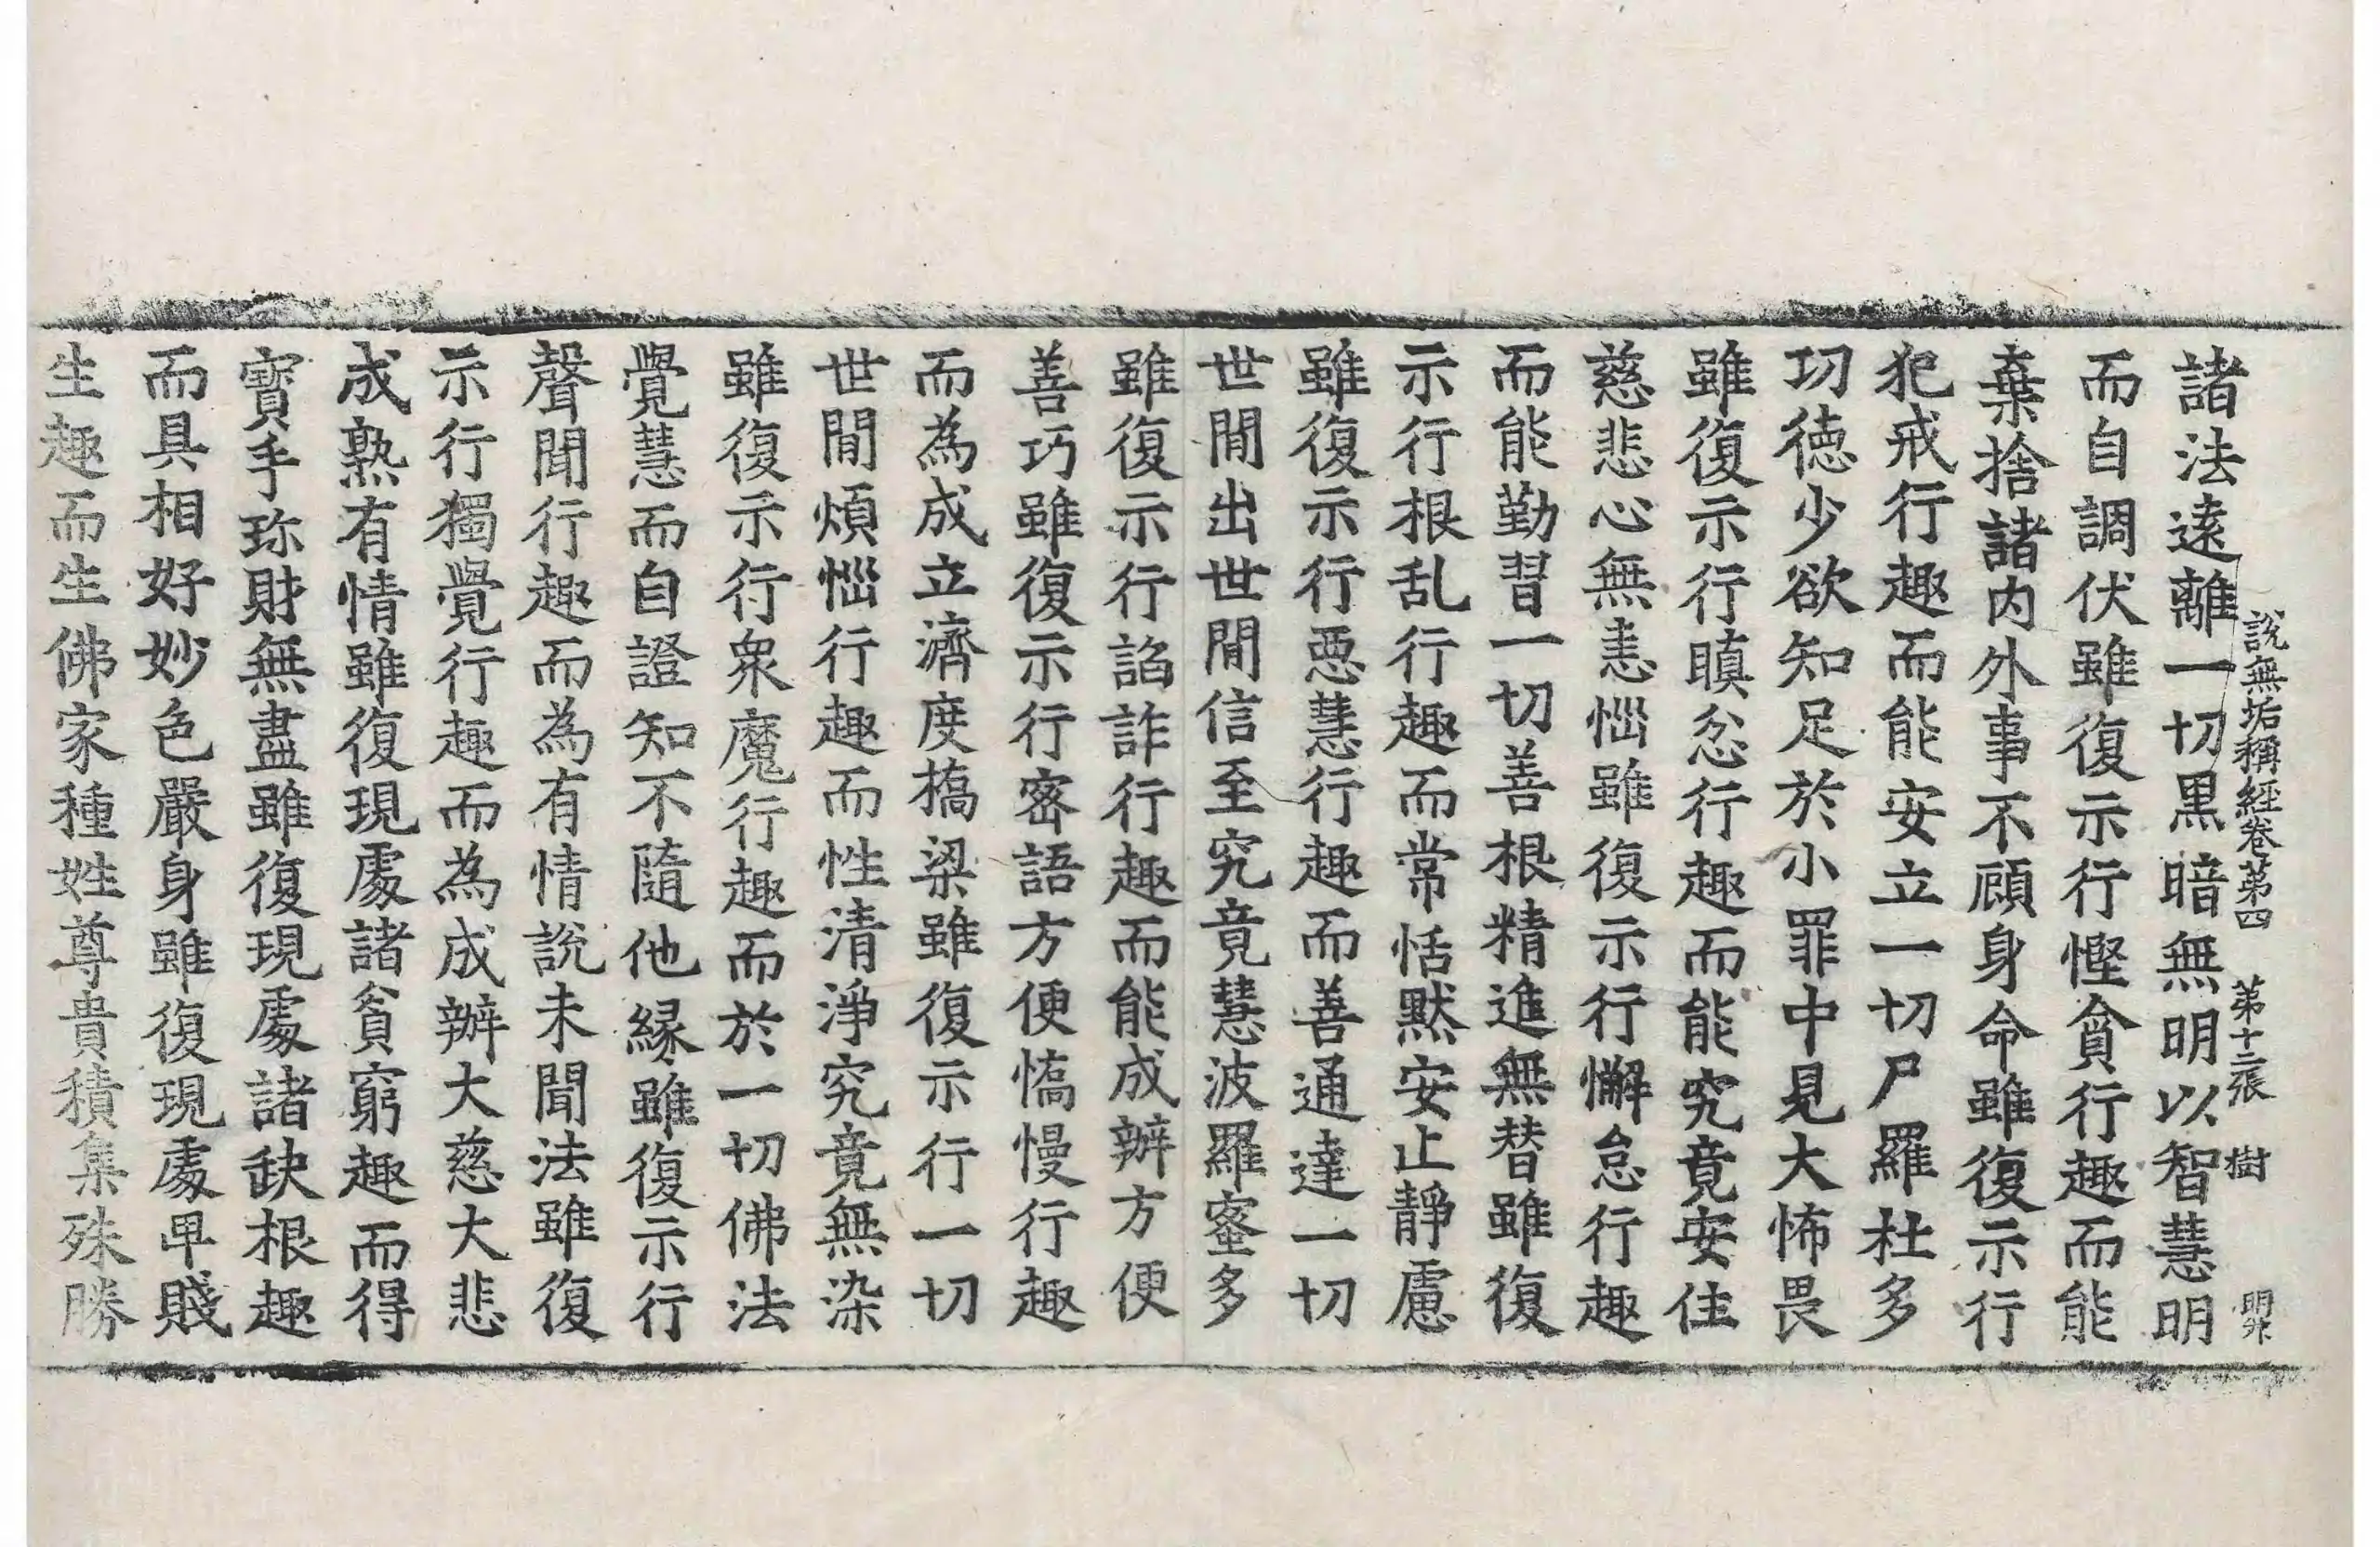 諸法遠離一切黒暗無明以智慧明
說無垢稱經卷第四　第十二張　樹
而自調伏雖復示行慳貪行趣而能
棄捨諸内外事不顧身命雖復示行
犯戒行趣而能安立一切尸羅杜多
功德少欲知足於小罪中見大怖畏
雖復示行瞋忿行趣而能究竟安住
慈悲心無恚惱雖復示行懈怠行趣
而能勤習一切善根精進無替雖復
示行根乱行趣而常恬默安止靜慮
雖復示行惡慧行趣而善通達一切
世間出世間信至究竟慧波羅蜜多
雖復示行諂詐行趣而能成辦方便
善巧雖復示行密語方便憍慢行趣
而為成立濟度橋梁雖復示行一切
世間煩惱行趣而性清淨究竟無染
雖復示行衆魔行趣而於一切佛法
覺慧而自證知不隨他縁雖復示行
聲聞行趣而為有情說未聞法雖復
示行獨覺行趣而為成辦大慈大悲
成熟有情雖復現處諸貧窮趣而得
寶手珎財無盡雖復現處諸缺根趣
而具相好妙色嚴身雖復現處卑賤
生趣而生佛家種姓尊貴積集殊勝